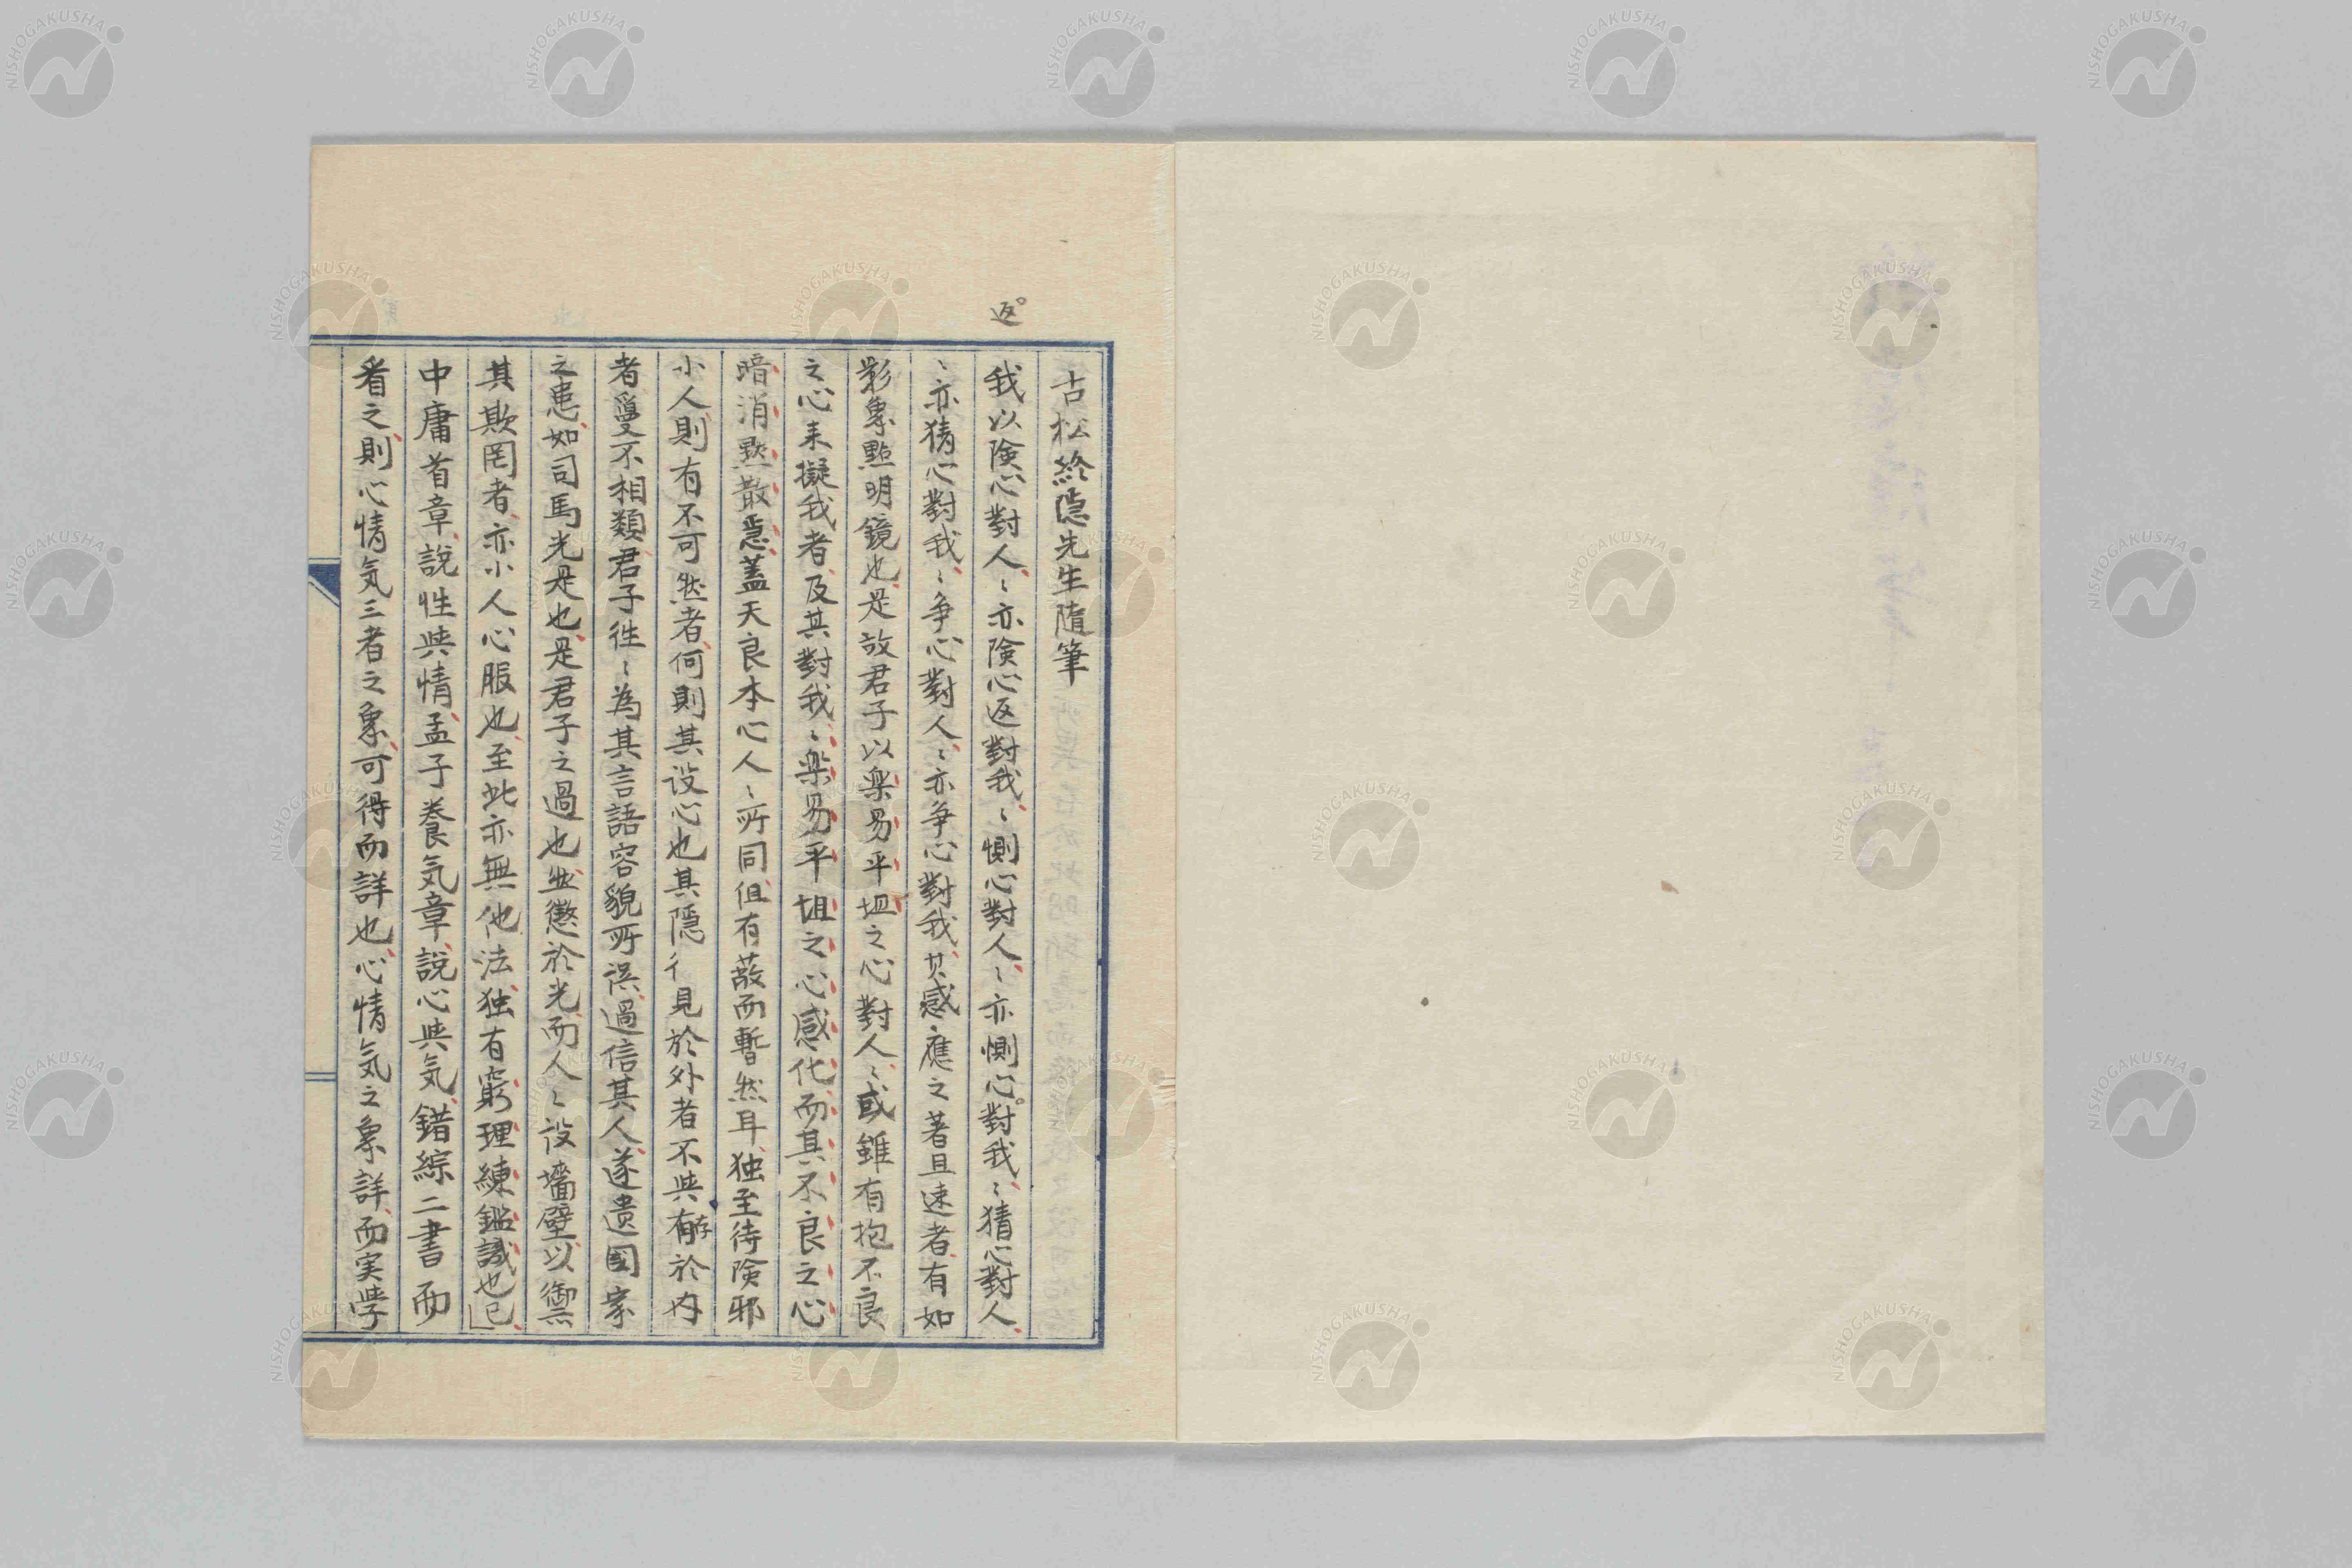 返
古松終隠先生随筆
我以険心對人〻亦険心返對我〻惻心對人〻亦惻心對我〻猜心對人
〻亦猜心對我〻争心對人〻亦争心對我其感應之著且速者有如
影象點明鏡也是故君子以楽易平坦之心對人〻或雖有抱不良
之心来擬我者及其對我〻楽易平坦之心感化而其不良之心
暗消黙散焉蓋天良本心人〻所同但有蔽而暫然耳独至待険邪
小人則有不可然者何則其設心也其隠彳見於外者不與存於内
者夐不相類君子往〻為其言語容貌所誤過信其人遂遺国家
之患如司馬光是也是君子之過也然懲於光而人〻設墻壁以禦
其欺罔者亦小人心服也至此亦無他法独有窮理練鑑識也已
中庸首章説性與情孟子養気章説心與気錯綜二書而
看之則心情気三者之象可得而詳也心情気之象詳而実学
NISHOGAKUSHA